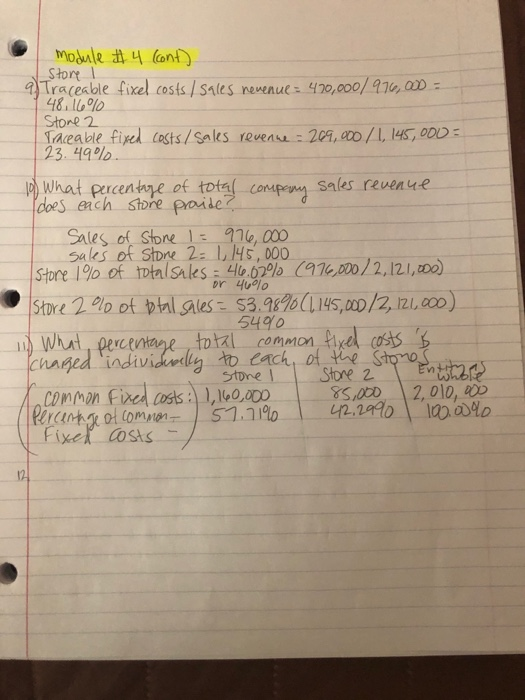 Module # 4 (cont)
Store 1
9) Traceable fixed costs / sales revenue = 470,000/976,000 =
48.16%
Store 2
Traceable fixed costs/Sales revenue = 269,000/1,145,000=
23.49%.
10) What percentage of total company sales revenue
does each store provide?
Sales of Store 1 = 976,000
sales of Store 2= 1,145,000
Store 1% of total sales = 46.02% (976,000/2,121,000)
or 46%
Store 2 % of total sales = 53.98% (1,145,000/2,121,000)
54%
11) What percentage total common fixed costs is
charged individually to each of the stores
Store 1 | Store 2 | Entity as
whole
Common Fixed costs: 1,160,000 85,000 2,010,000
Percentage of common- 57.71% 42.29% 100.00%
Fixed costs -
12